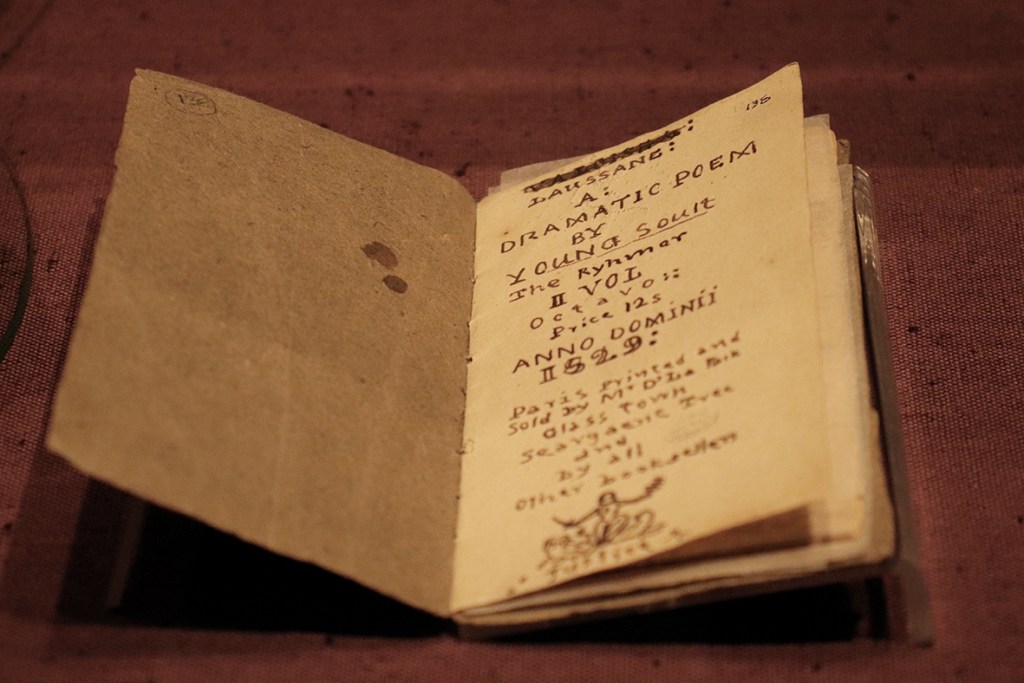 138
138
LAUSSANE:
A:
DRAMATIC POEM
BY
YOUNG Soult
The Rynmer
II VOL
Octavo::
Price 12s
ANNO DOMINII
II829:
Paris printed and
Sold by Mr De La Pack
Glass Town
Seargaent Tree
and
by all
Other booksellers